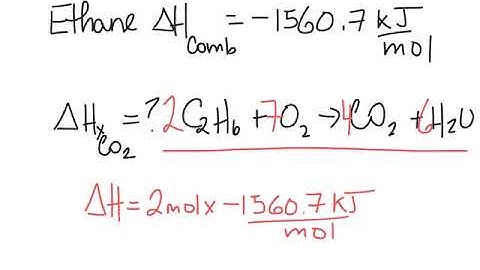 Ethane ΔH comb = -1560.7 kJ/mol
ΔHx CO2 = ? 2C2H6 + 7O2 → 4CO2 + 6H2O
ΔH = 2mol x -1560.7 kJ/mol